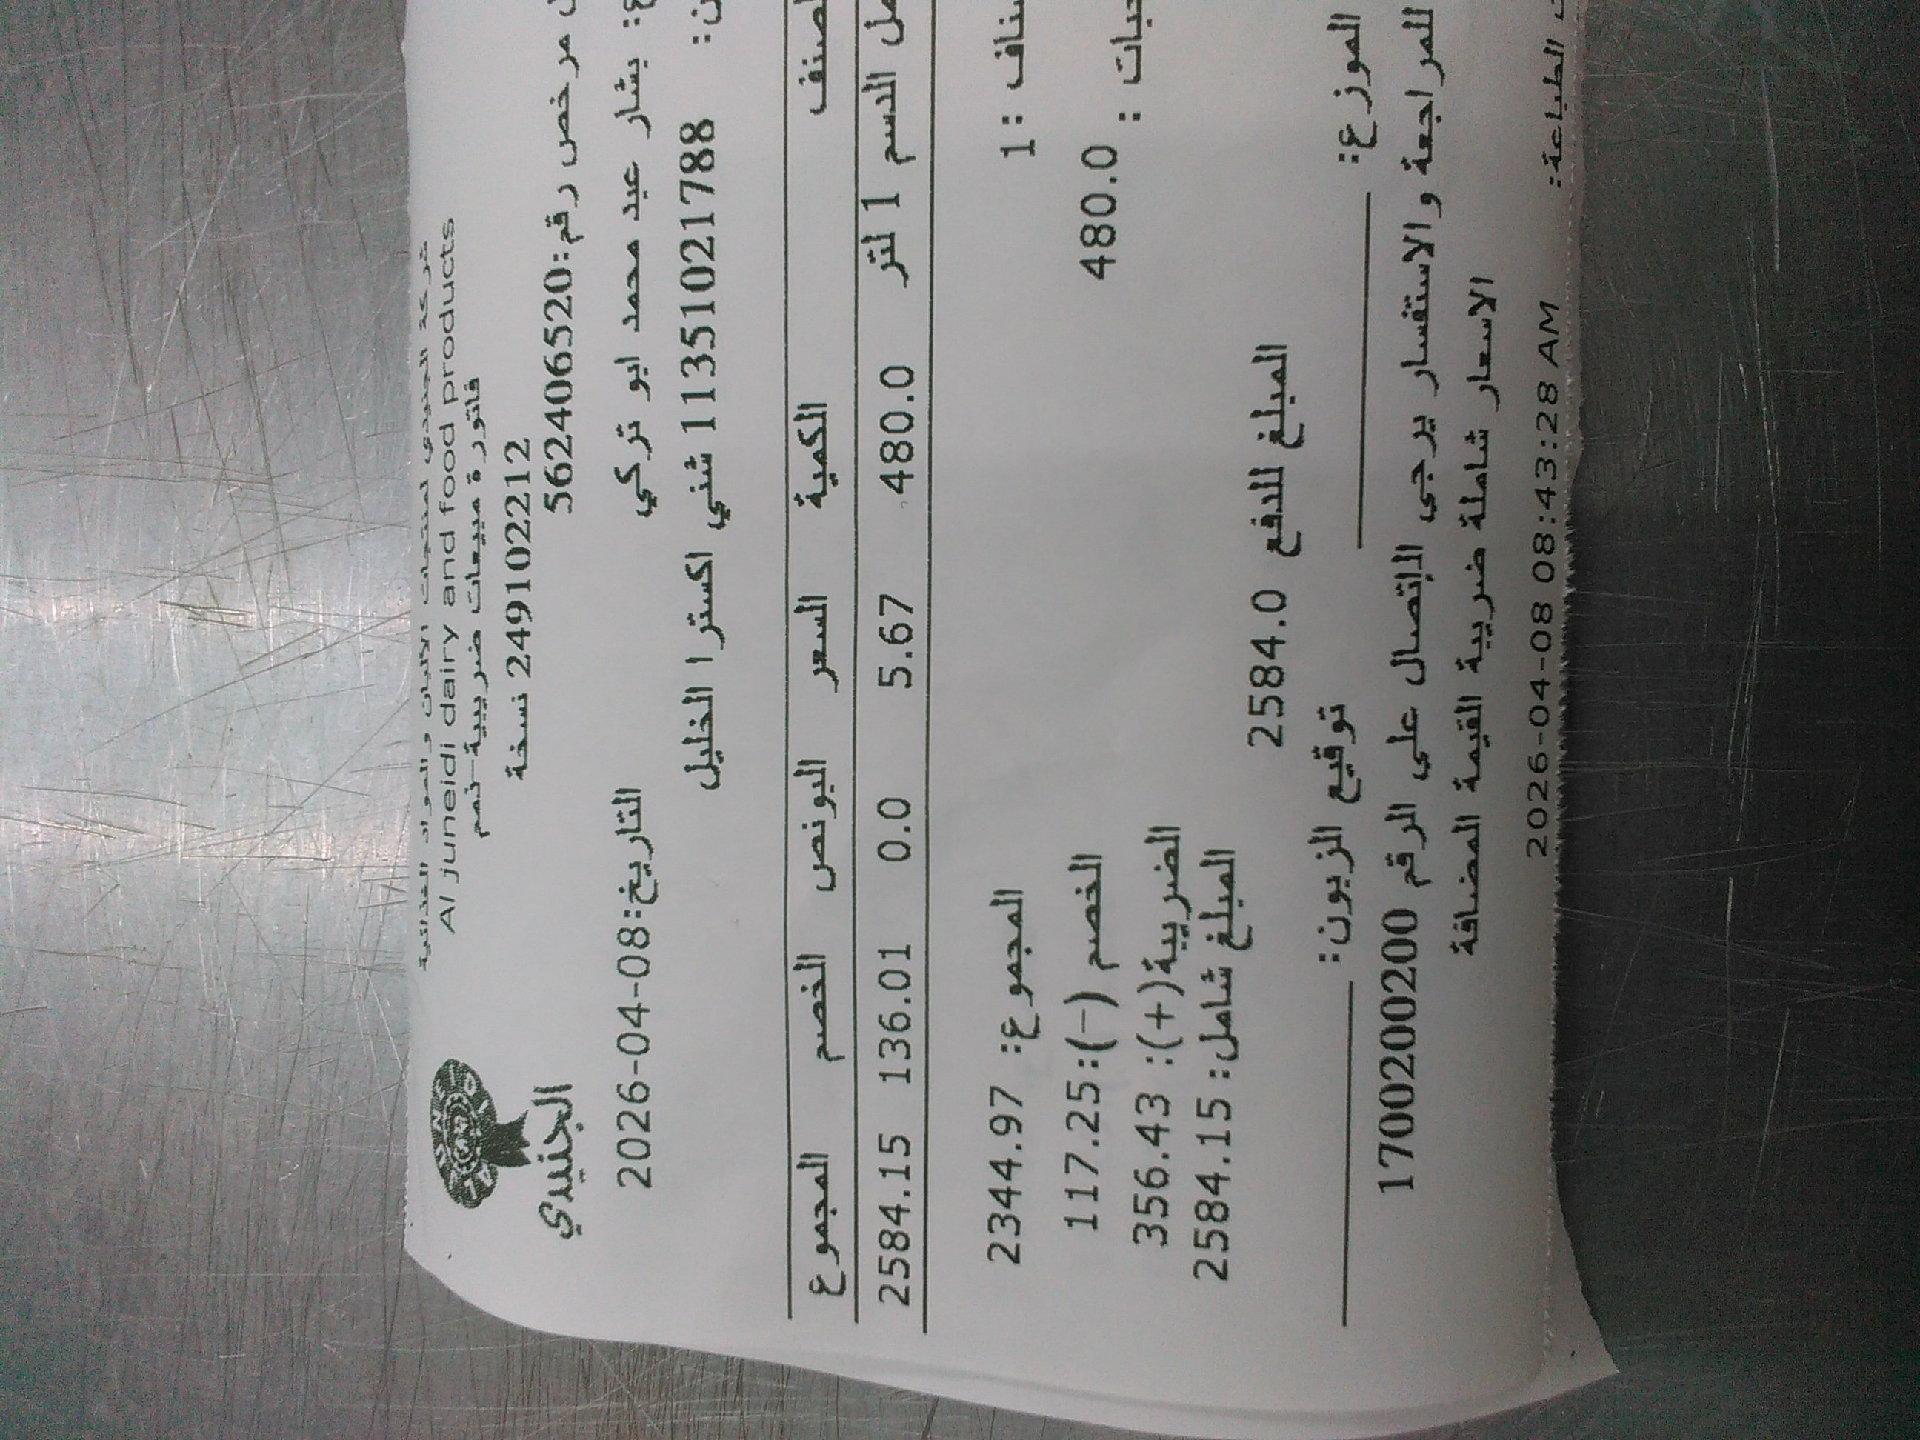 شركة الجنيدي لمنتجات الالبان والمواد الغذائية
Al juneidi dairy and food products
فاتورة مبيعات ضريبية-ذمم
249102212 نسخة
الجنيدي
مرخص رقم:562406520
بشار عبد محمد ابو تركي
التاريخ:2026-04-08
11351021788 شني اكسترا الخليل
الصنف الكمية السعر البونص الخصم المجموع
الدسم 1 لتر 480.0 5.67 0.0 136.01 2584.15
1:
المجموع: 2344.97
480.0 :
الخصم (-):117.25
الضريبة(+): 356.43
المبلغ شامل: 2584.15
المبلغ للدفع 2584.0
الموزع:
توقيع الزبون:
للمراجعة والاستفسار يرجى الإتصال على الرقم 1700200200
الاسعار شاملة ضريبة القيمة المضافة
الطباعة: 2026-04-08 08:43:28 AM